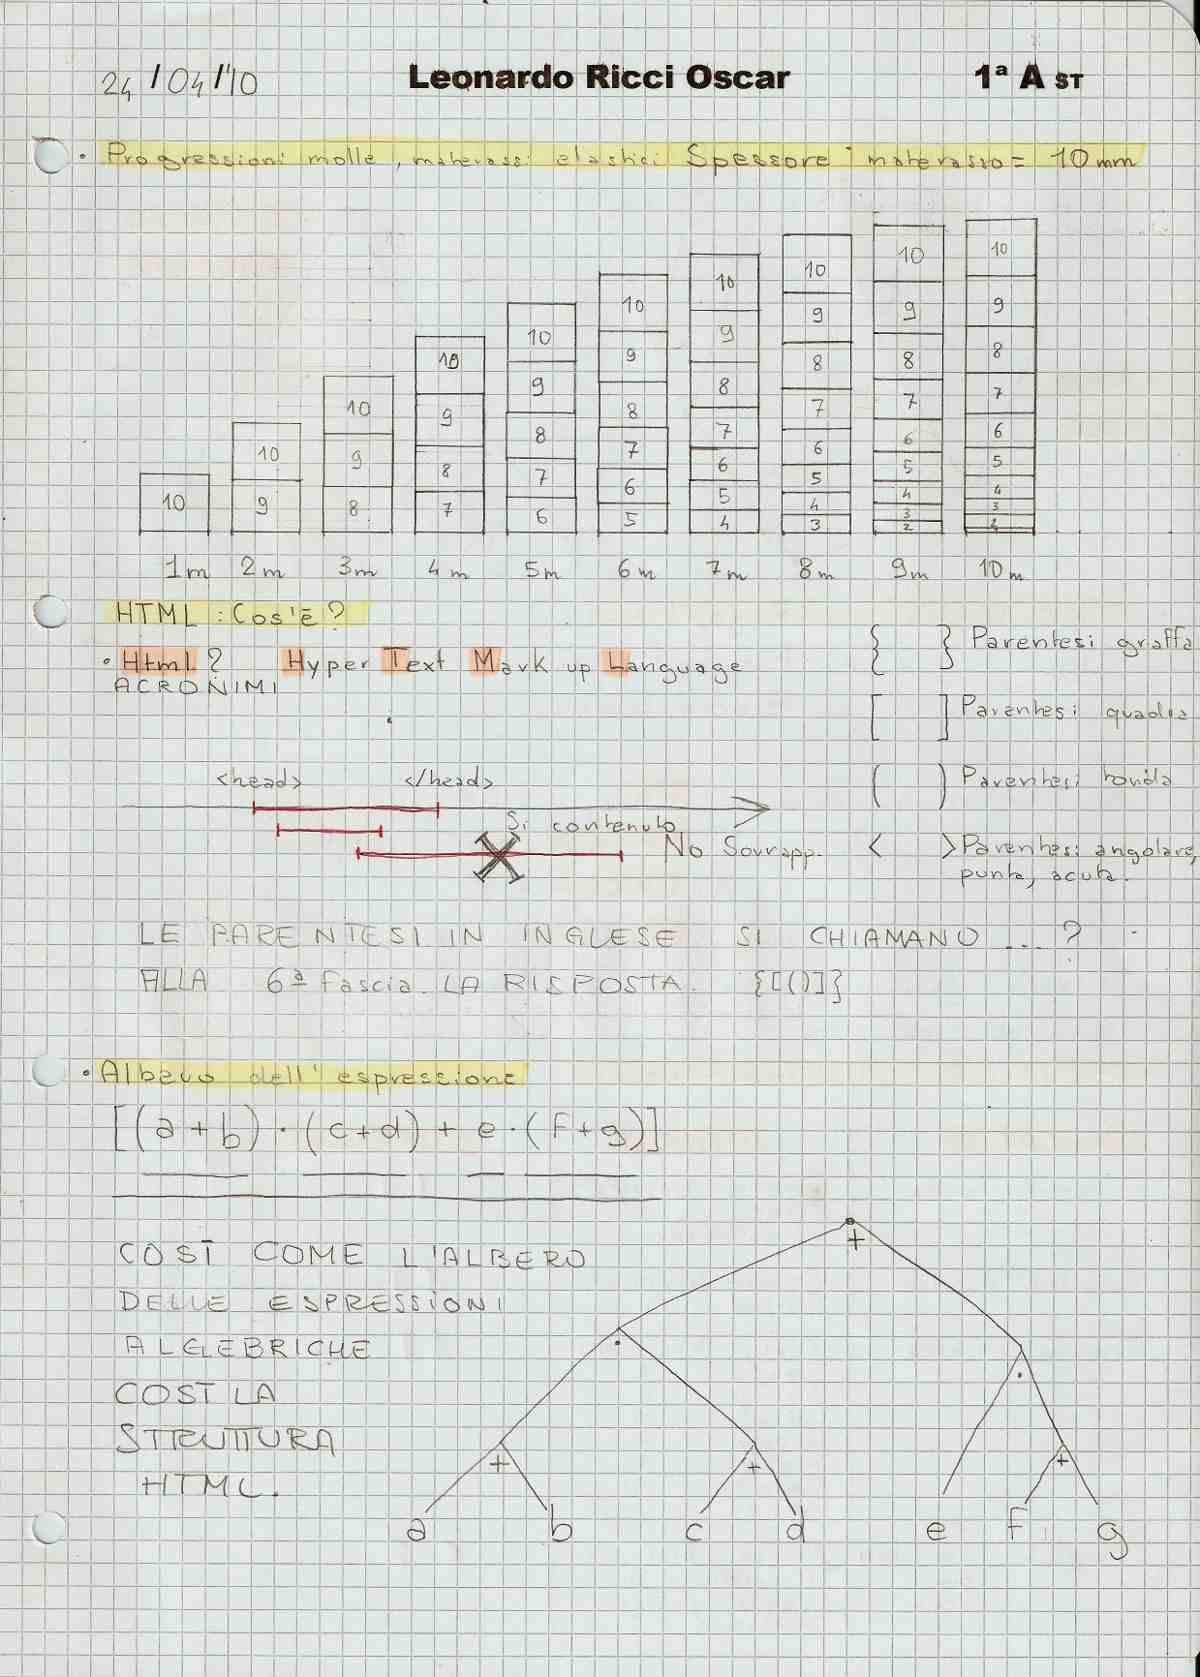 24/04/'10 Leonardo Ricci Oscar 1ª A ST
• Progressioni molle, materassi elastici Spessore materasso = 10 mm
10
10 9
10 9 8
10 9 8 7
10 9 8 7 6
10 9 8 7 6 5
10 9 8 7 6 5 4
10 9 8 7 6 5 4 3
10 9 8 7 6 5 4 3 2
10 9 8 7 6 5 4 3
1m 2m 3m 4m 5m 6m 7m 8m 9m 10m
HTML : Cos'è?
• Html? Hyper Text Mark up Language
ACRONIMI
{ } Parentesi graffa
[ ] Parentesi quadra
( ) Parentesi tonda
< > Parentesi angolare,
punta, acuta.
<head> </head>
Si contenuto
No Sovrapp.
LE PARENTESI IN INGLESE SI CHIAMANO ...?
ALLA 6ª fascia. LA RISPOSTA. {[()]}
• Albero dell'espressione
[(a+b)·(c+d)+e·(f+g)]
COSÌ COME L'ALBERO
DELLE ESPRESSIONI
ALGEBRICHE
COSÌ LA
STRUTTURA
HTML.
+
· ·
+ + +
a b c d e f g